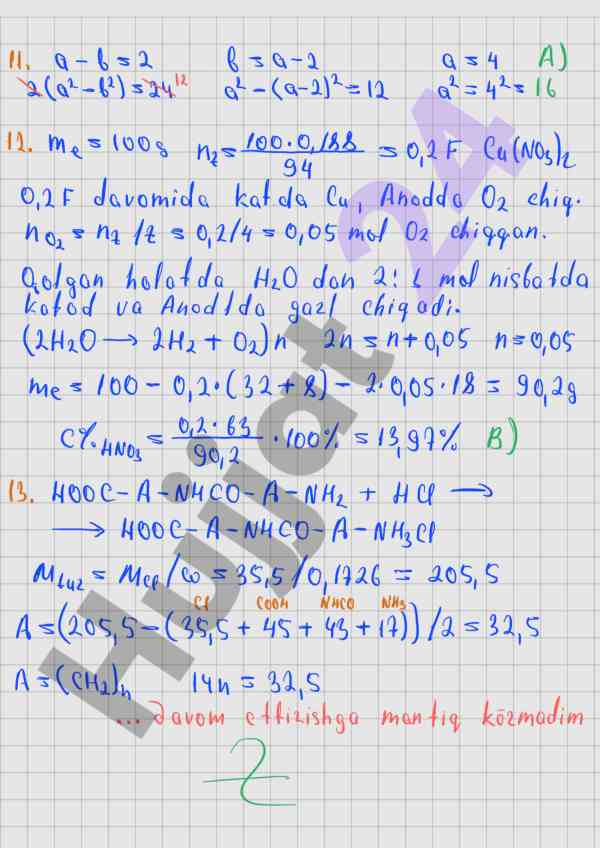 11. a - b = 2 b = a - 2 a = 4 A)
2(a² - b²) = 24 12 a² - (a-2)² = 12 a² = 4² = 16
12. me = 100g nz = 100·0,188/94 = 0,2F Cu(NO3)2
0,2F davomida katda Cu, Anodda O2 chiq.
nO2 = nz/z = 0,2/4 = 0,05 mol O2 chiqqan.
Qolgan holatda H2O dan 2:1 mol nisbatda
katod va Anodtda gazl chiqadi.
(2H2O → 2H2 + O2)n 2n = n + 0,05 n = 0,05
me = 100 - 0,2·(32+8) - 2·0,05·18 = 90,2g
C%HNO3 = 0,2·63/90,2 · 100% = 13,97% B)
13. HOOC-A-NHCO-A-NH2 + HCl →
→ HOOC-A-NHCO-A-NH3Cl
Mtuz = MCl/ω = 35,5/0,1726 = 205,5
Cl COOH NHCO NH3
A = (205,5 - (35,5 + 45 + 43 + 17))/2 = 32,5
A = (CH2)n 14n = 32,5
... davom ettirishga mantiq ko'rmadim
Hujjat 24